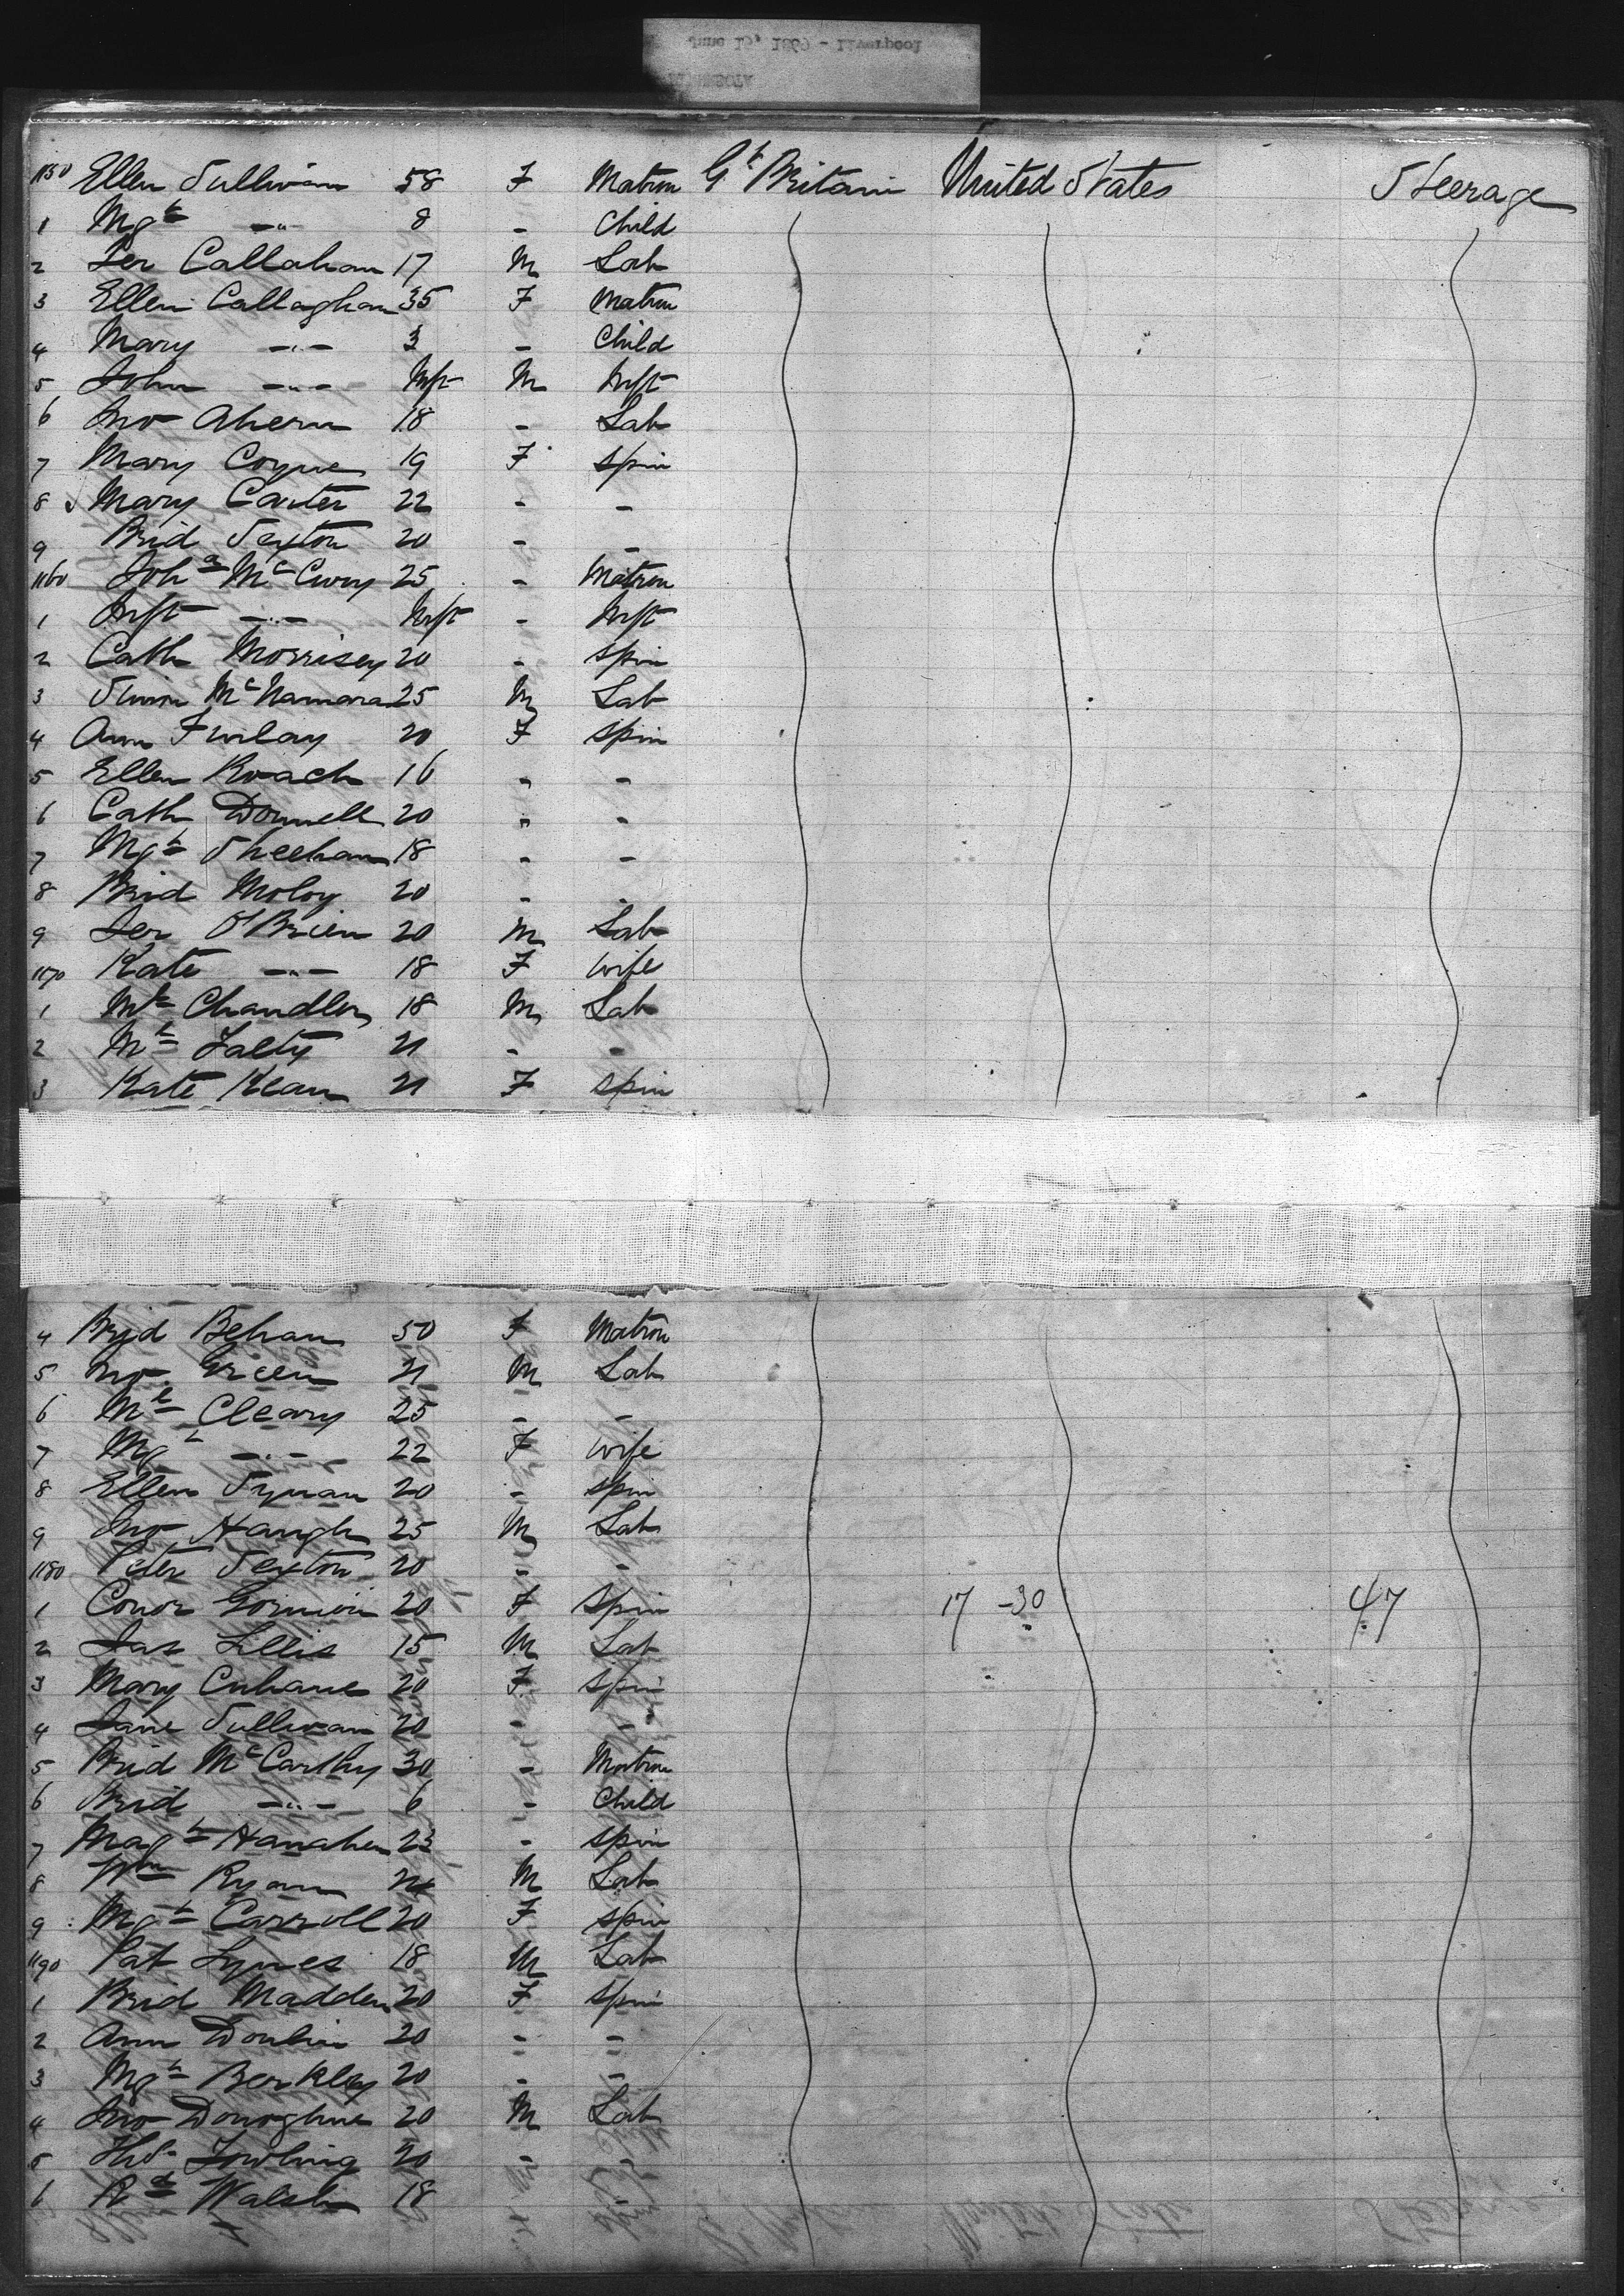 June 15, 1869 - Liverpool
MINNESOTA
1150 Ellen Sullivan 58 F Matron Gt Britain United States Steerage
1 Mgt -"- 8 - Child
2 Jer Callahan 17 M Lab
3 Ellen Callaghan 35 F Matron
4 Mary -"- 3 - Child
5 John -"- Inft M Inft
6 Jno Ahern 18 - Lab
7 Mary Coyne 19 F Spin
8 Mary Carter 22 - -
9 Brid Sexton 20 - -
1160 Joha McCurry 25 - Matron
1 Inft -"- Inft - Inft
2 Cath Morrisey 20 - Spin
3 Simon McNamara 25 M Lab
4 Ann Finlay 20 F Spin
5 Ellen Roach 16 - -
6 Cath Donnell 20 - -
7 Mgt Sheehan 18 - -
8 Brid Moloy 20 - -
9 Jer O'Brien 20 M Lab
1170 Kate -"- 18 F Wife
1 Ml Chandler 18 M Lab
2 Ml Falty 21 - -
3 Kate Kean 21 F Spin
4 Brid Behan 50 F Matron
5 Jno Green 21 M Lab
6 Ml Cleary 25 - -
7 Mgt -"- 22 F Wife
8 Ellen Synan 20 - Spin
9 Jno Haugh 25 M Lab
1180 Peter Sexton 20 - -
1 Conor 20 F Spin 17 -30 47
2 Jas Lillis 15 M Lab
3 Mary Culhane 20 F Spin
4 Jane Sullivan 20 - -
5 Brid McCarthy 30 - Matron
6 Brid -"- 6 - Child
7 Magt Hanahen 23 - Spin
8 Wm Ryan M Lab
9 Mgt Carroll 20 F Spin
1190 Pat Lynes 18 M Lab
1 Brid Madden 20 F Spin
2 Ann 20 - -
3 Mgt Berkley 20 - -
4 Jno Donoghue 20 M Lab
5 Thos 20 -
6 Rd Walsh 18 -